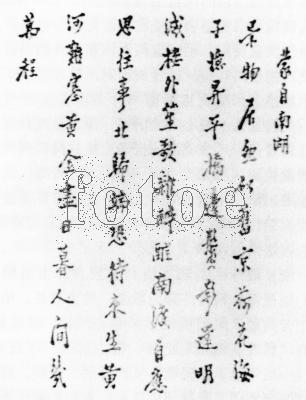 蒙自南湖
景物居然似舊京荷花海
子憶昇平橋邊鬢影還明
滅樓外笙歌雜醉醒南渡自應
思往事北歸端恐待來生黃
河難塞黃金盡日暮人間幾
萬程
fotoe